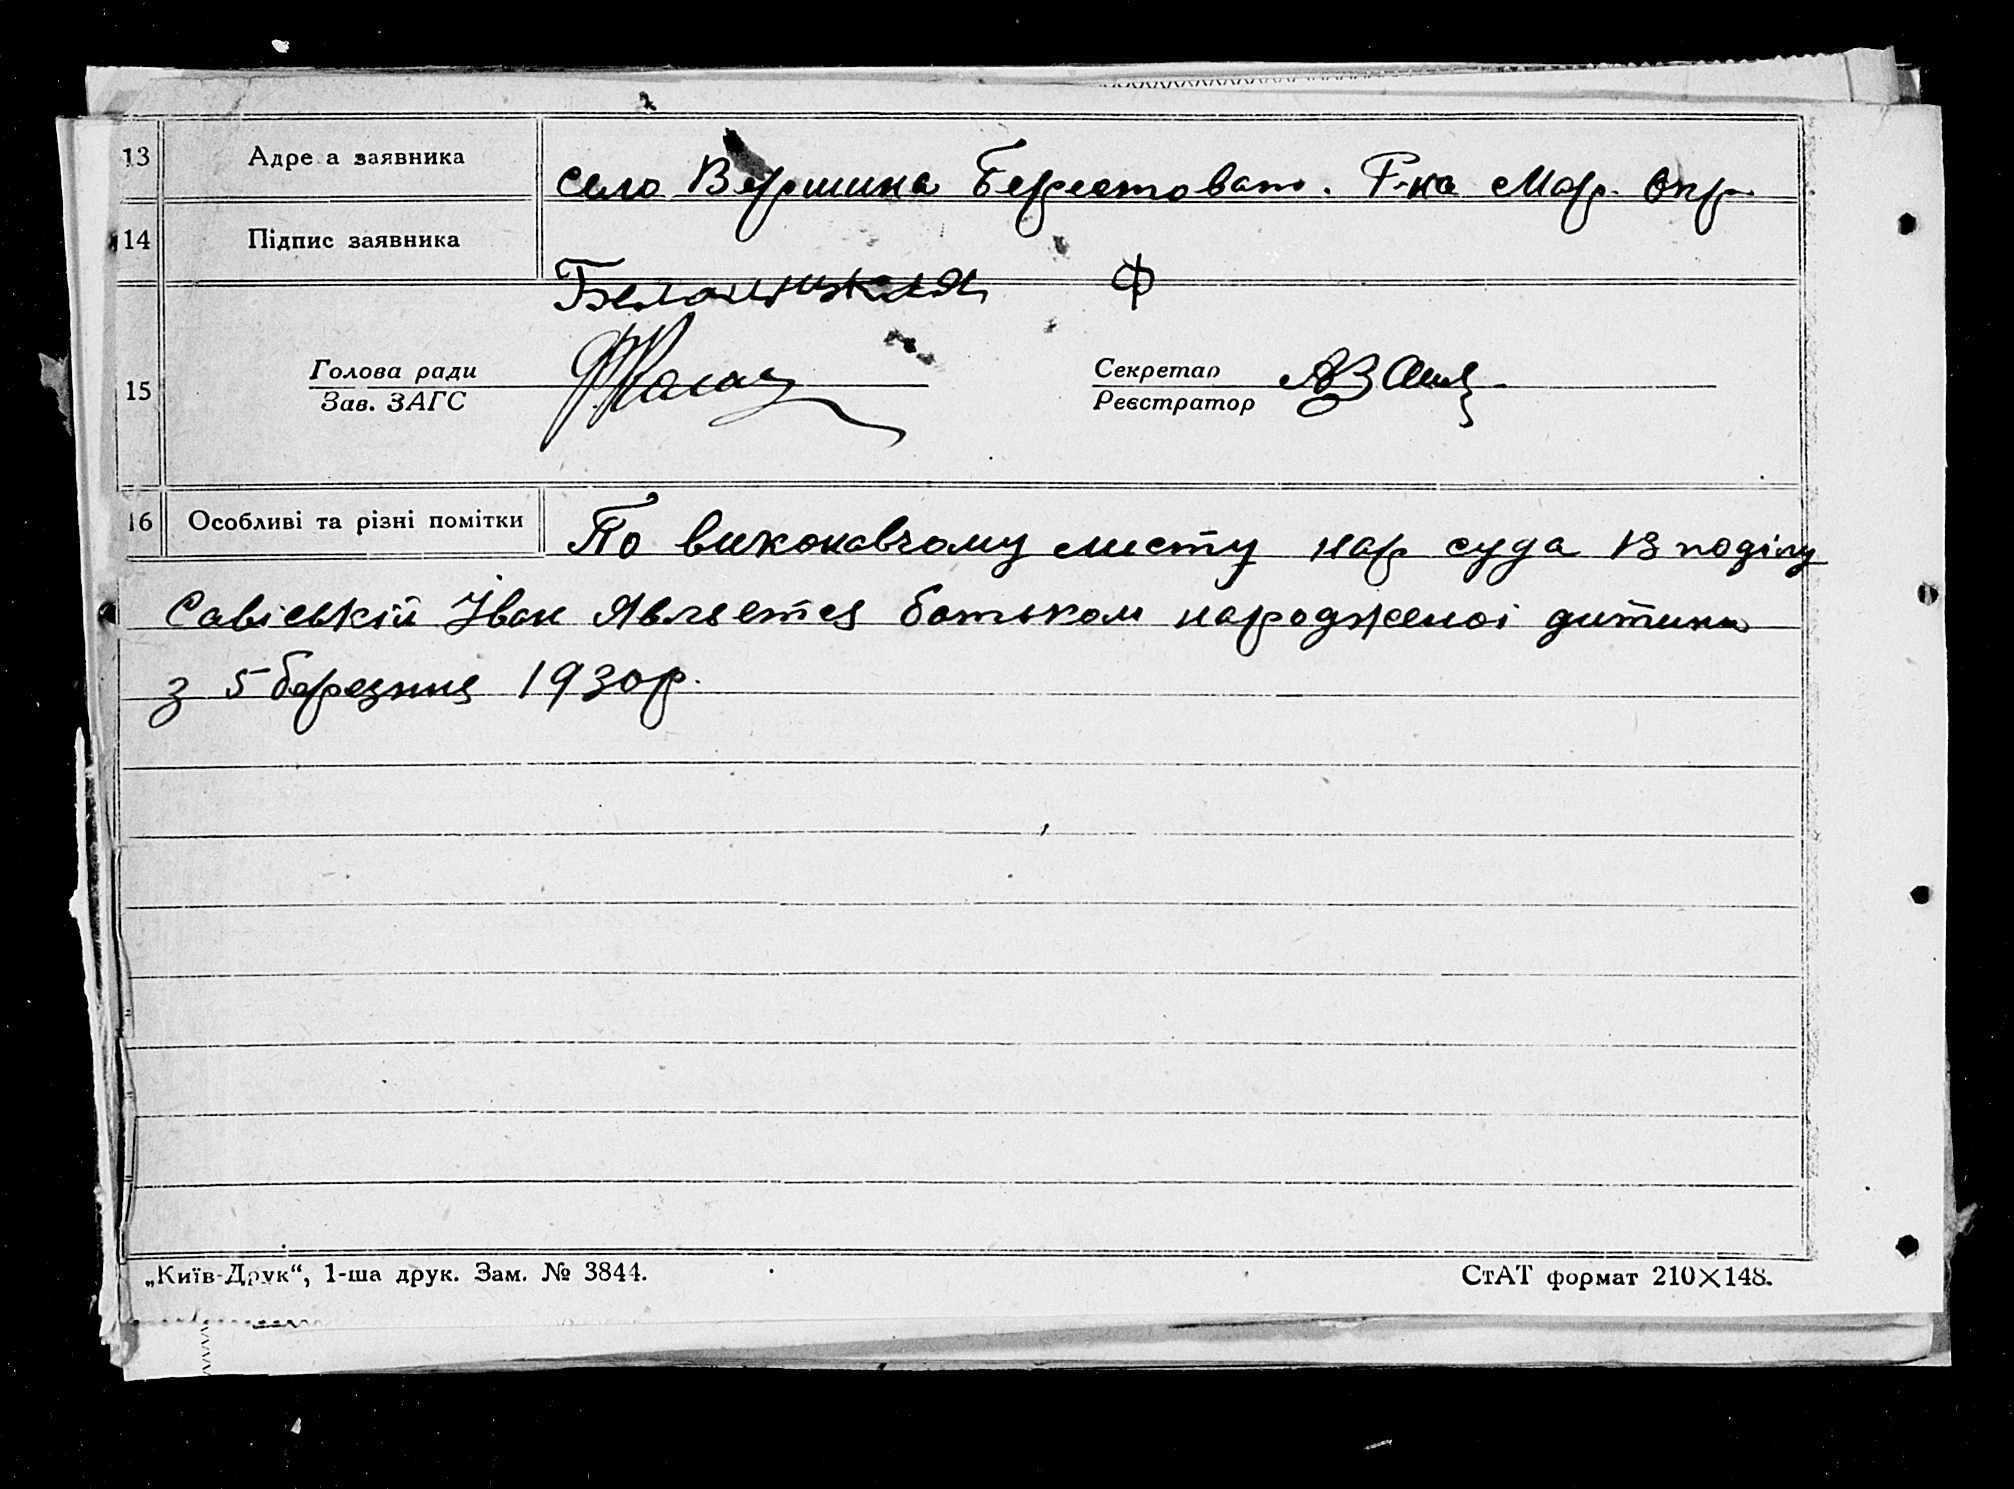 13 Адре а заявника село Вершина Берестоват. Р-на Мар. Окр
14 Підпис заявника
Ф
15 Голова ради Секретар
Зав. ЗАГС Реєстратор
16 Особливі та різні помітки По виконавчому листу нар суда 13 поділу
Савіський Іван Является батьком народженоі дитини
з 5 березня 1930р.
„Київ-Друк“, 1-ша друк. Зам. № 3844. СтАТ формат 210×148.